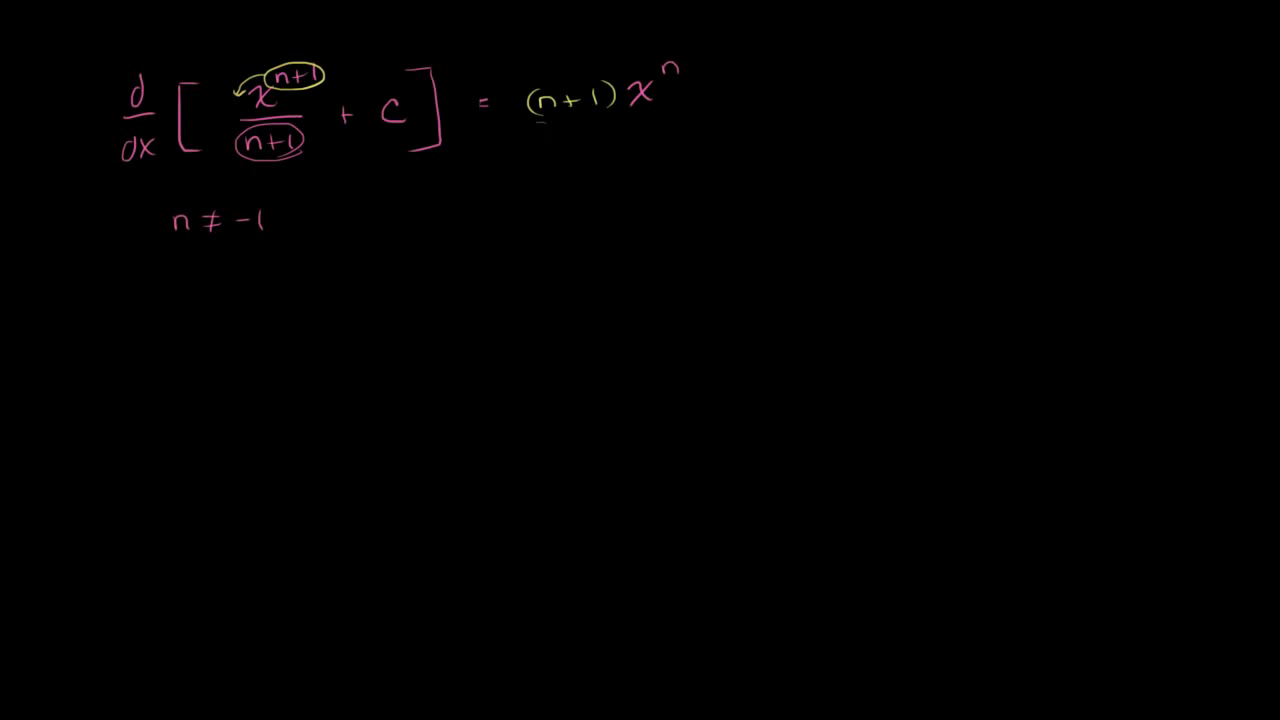 d/dx [ x^(n+1)/(n+1) + C ] = (n+1) x^n
n ≠ -1